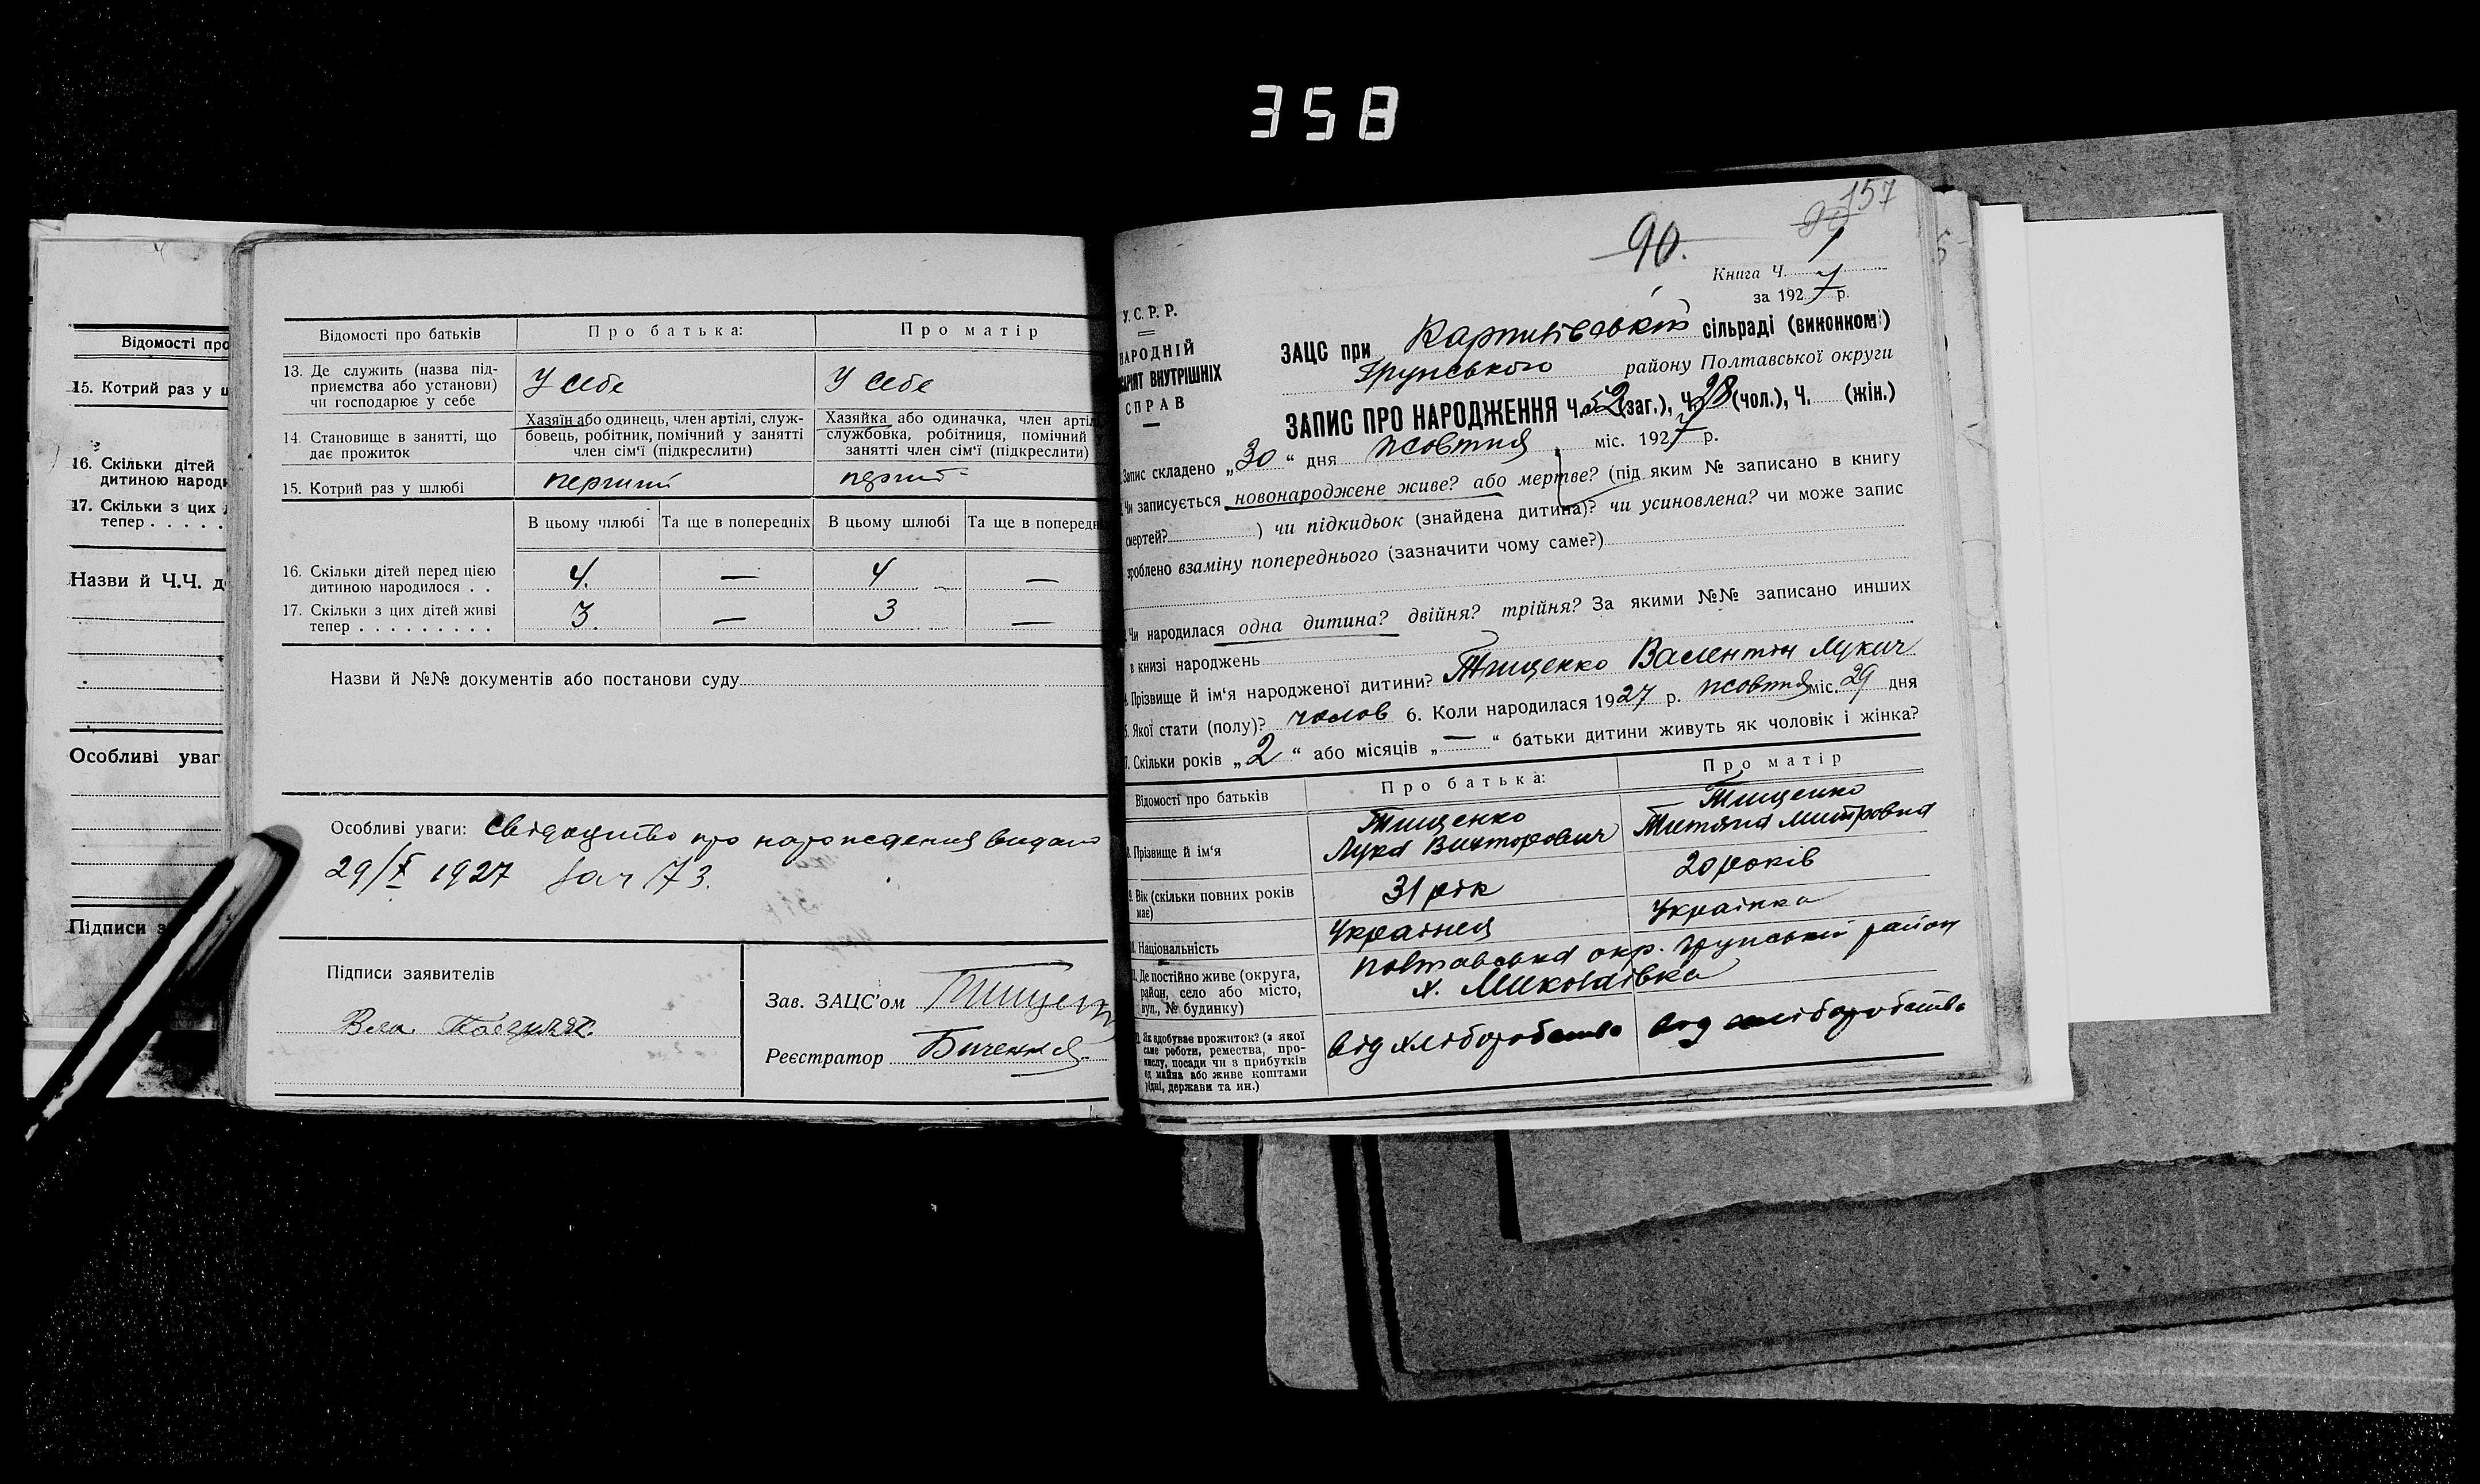 358
Відомості про
15. Котрий раз у ш
16. Скільки дітей
дитиною народж
17. Скільки з цих д
тепер . . . . .
Назви й Ч.Ч. д
Особливі уваг
Підписи з
Відомості про батьків
Про батька:
Про матір
13. Де служить (назва під-
приємства або установи)
чи господарює у себе
У себе
У себе
14. Становище в занятті, що
дає прожиток
Хазяїн або одинець, член артілі, служ-
бовець, робітник, помічний у занятті
член сім'ї (підкреслити)
Хазяйка або одиначка, член артіл
службовка, робітниця, помічний
занятті член сім'ї (підкреслити)
15. Котрий раз у шлюбі
перший
перший
В цьому шлюбі
Та ще в попередніх
В цьому шлюбі
Та ще в попередн
16. Скільки дітей перед цією
дитиною народилося . .
4. — 4 —
17. Скільки з цих дітей живі
тепер . . . . . . . . .
3. — 3 —
Назви й №№ документів або постанови суду
Особливі уваги: Свідоцтво про народження видано
29/X 1927 за ч 73.
Підписи заявителів
Зав. ЗАЦС'ом Тищен
Реєстратор
157
90
90.
Книга Ч. 1
за 1927 р.
У.С.Р.Р.
НАРОДНІЙ
АРІЯТ ВНУТРІШНІХ
СПРАВ
ЗАЦС при сільраді (виконкомі)
Грунського району Полтавської округи
ЗАПИС ПРО НАРОДЖЕННЯ Ч. 52 (заг.), Ч. 28 (чол.), Ч. (жін.)
Запис складено „30“ дня жовтня міс. 1927 р.
Чи записується новонароджене живе? або мертве? (під яким № записано в книгу
смертей? ) чи підкидьок (знайдена дитина)? чи усиновлена? чи може запис
зроблено взаміну попереднього (зазначити чому саме?)
Чи народилася одна дитина? двійня? трійня? За якими №№ записано инших
в книзі народжень
4. Прізвище й ім'я народженої дитини? Тищенко Валентин Лукич
5. Якої стати (полу)? чолов 6. Коли народилася 1927 р. жовтня міс. 29 дня
7. Скільки років „2“ або місяців „—“ батьки дитини живуть як чоловік і жінка?
Відомості про батьків
Про батька:
Про матір
8. Прізвище й ім'я
Тищенко
Лука Вікторович
Тищенко
Тетяна Митровна
9. Вік (скільки повних років
має)
31 рік
20 років
10. Національність
Українец
Українка
11. Де постійно живе (округа,
район, село або місто,
вул., № будинку)
Полтавська окр. Грунський район
х. Миколаівка
12. Як здобуває прожиток? (з якої
саме роботи, ремества, про-
мислу, посади чи з прибутків
од майна або живе коштами
рідні, держави та ин.)
від хліборобства
від хліборобства